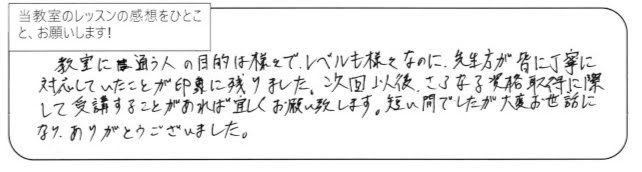 当教室のレッスンの感想をひとこ
と、お願いします!
教室に通う人の目的は様々で、レベルも様々なのに、先生方が皆に丁寧に
対応していたことが印象に残りました。次回以後、さらなる資格取得に際
して受講することがあれば宜しくお願い致します。短い間でしたが大変お世話に
なり、ありがとうございました。